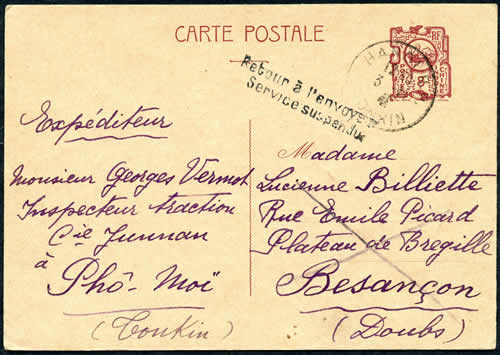 CARTE POSTALE
RF
Retour à l'envoyeur
Service suspendu
Expéditeur
Monsieur Georges Vermot
Inspecteur traction
Cie Yunnan
à
Phô-Moï
(Tonkin)
Madame
Lucienne Billiette
Rue Emile Picard
Plateau de Bregille
Besançon
(Doubs)